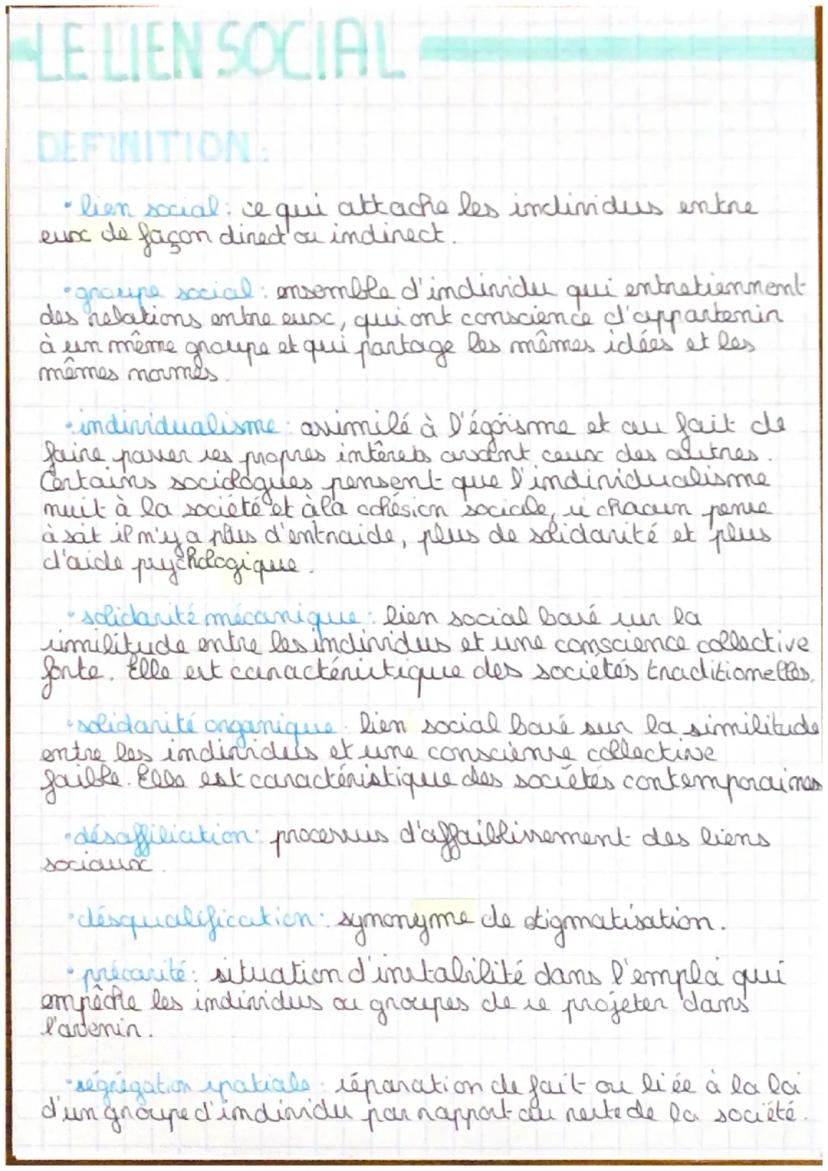 LE LIEN SOCIAL
DEFINITION:
• lien social: ce qui attache les individus entre
eux de façon direct ou indirect.
• groupe social: ensemble d'individu qui entretiennent
des relations entre eux, qui ont conscience d'appartenir
à un même groupe et qui partage les mêmes idées et les
mêmes normes.
• individualisme: assimilé à l'égoïsme et au fait de
faire passer ses propres intérêts avant ceux des autres.
Certains sociologues pensent que l'individualisme
nuit à la société et à la cohésion sociale, si chacun pense
à soit il n'y a plus d'entraide, plus de solidarité et plus
d'aide psychologique.
• solidarité mécanique: lien social basé sur la
similitude entre les individus et une conscience collective
forte. Elle est caractéristique des sociétés traditionelles.
• solidarité organique: lien social basé sur la similitude
entre les individus et une conscience collective
faible. Elle est caractéristique des sociétés contemporaines
• désaffiliation: processus d'affaiblissement des liens
sociaux.
• désqualification: synonyme de stigmatisation.
• précarité: situation d'instabilité dans l'emploi qui
empêche les individus ou groupes de se projeter dans
l'avenir.
• ségrégation spatiale: séparation de fait ou liée à la loi
d'un groupe d'individu par rapport au reste de la société.